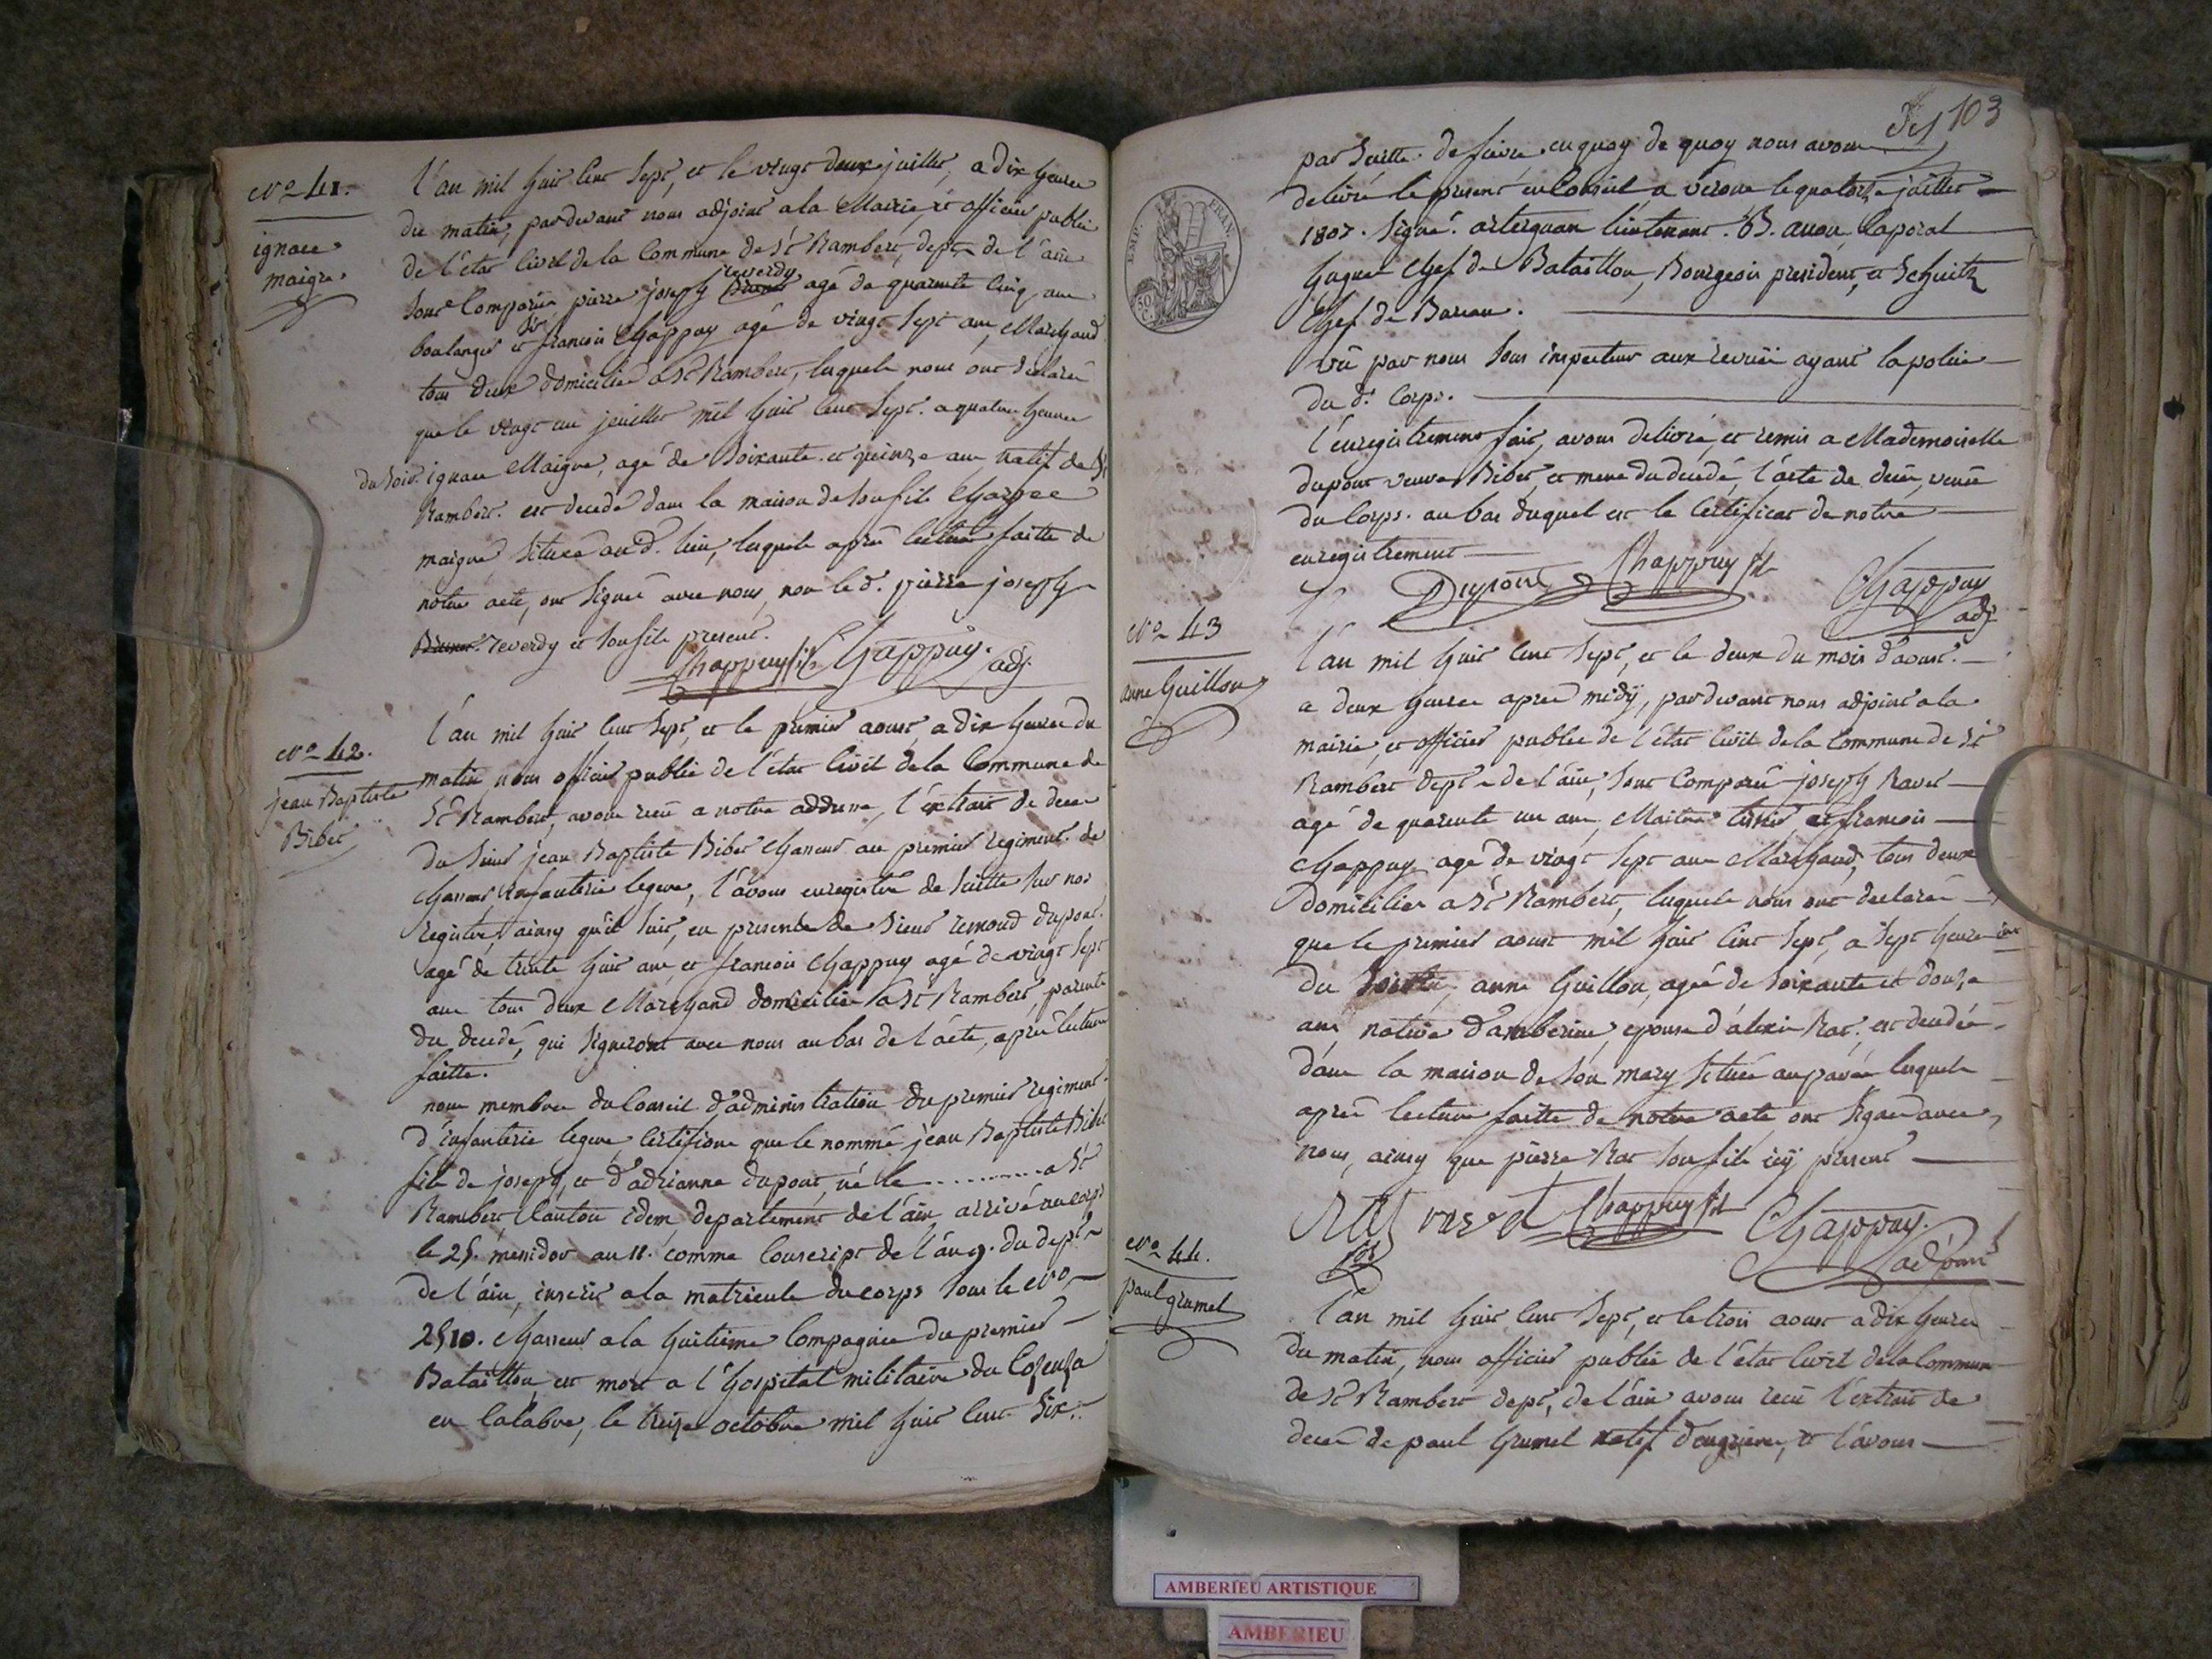 N° 41.
ignace
maigre
l'an mil huit cent sept, et le vingt deux juillet, a dix heures
du matin, pardevant nous adjoint a la Mairie, et officier public
de l'état civil de la Commune de St Rambert, dept. de l'ain
sont comparus pierre joseph reverdy agé de quarente cinq ans
boulanger et sr francois Chappuy agé de vingt sept ans, Marchand
tous deux domiciliés a St Rambert, lesquels nous ont declarés
que le vingt un juillet mil huit cent sept. a quatre heures
du soir. ignace Maigre, agé de Soixante et quinze ans natif de St
Rambert. est decedé dans la maison de son fils
maigre Située aud. lieu, lesquels après lecture faitte de
notre acte, ont Signés avec nous, non le d. pierre joseph
reverdy et son fils present.
Chappuy fils Chappuy. adj.
N° 42.
jean Baptiste
Bibet
l'an mil huit cent sept, et le premier aoust a dix heures du
matin nous officier public de l'état civil de la Commune de
St Rambert, avons reçu a notre addresse, l'extrait de deces
du Sieur jean Baptiste Bibet Chasseur au premier regiment de
Chasseurs infanterie legere, l'avons enregistré de suitte sur nos
registres ainsy qu'il suit, en presence de Sieur remond dupont.
agé de trente huit ans et francois Chappuy agé de vingt sept
ans tous deux Marchand domiciliés a St Rambert, parents
du decedé, qui Signeront avec nous au bas de l'acte, après lecture
faitte.
nous membres du Conseil d'administration du premier regiment
d'infanterie legere, certifions que le nommé jean Baptiste Bibet
fils de joseph, et d'adrianne dupont, né le .......... a St
Rambert Canton idem, departement de l'ain, arrivé au corps
le 25. messidor an 11. comme Conscript de l'an 9. du dept.
de l'ain, inscrit a la matricule du corps sous le N°
2510. Chasseur a la huitieme Compagnie du premier
Bataillon est mort a l'hospital militaire du Cosenza
en Calabre, le treize octobre mil huit cent Six
103
par Suitte de fievre en quoy de quoy nous avons
delivré le present en Conseil a verone le quatorze juillet
1807. Signé. lieutenant. B. Caporal
huguet Chef de Bataillon, Bourgeois president, et Schuitz
Chef de Bureau.
EMP. FRAN.
50 C.
vu par nous Sous inspecteur aux revues ayant la police
du dt. Corps.
l'enregistrement fait, avons delivré, et remis a Mademoiselle
dupont veuve Bibet, et mere du decedé, l'acte de deces, venu
du Corps. au bas duquel est le Certificat de notre
enregistrement
Dupont Chappuy fils Chappuy adj.
N° 43
anne Guillon
l'an mil huit cent sept, et le deux du mois d'aoust.
a deux heures apres midÿ, pardevant nous adjoint a la
mairie, et officier public de l'état civil de la Commune de St
Rambert dept. de l'ain, sont comparus joseph Ravet
agé de quarente un ans, Maitre et francois
Chappuy agé de vingt sept ans Marchand, tous deux
domiciliés a St Rambert, lesquels nous ont declarés
que le premier aoust mil huit cent sept, a sept heures
du anne Guillon, agée de soixante et douze
ans, native d'amberieu, epouse d'alexis Rat. est decedée
dans la maison de son mary située au pavée lesquels
après lecture faitte de notre acte ont signés avec
nous, ainsy que pierre Rat son fils icÿ present
Rat ravet Chappuy fils Chappuy.
fils adjoint
N° 44.
paul grumel
l'an mil huit cent sept, et le trois aoust a dix heures
du matin, nous officier public de l'état civil de la Commune
de St Rambert dept, de l'ain avons recu l'extrait de
deces de paul Grumel natif d'ougrieres, et l'avons
AMBERIEU ARTISTIQUE
AMBERIEU